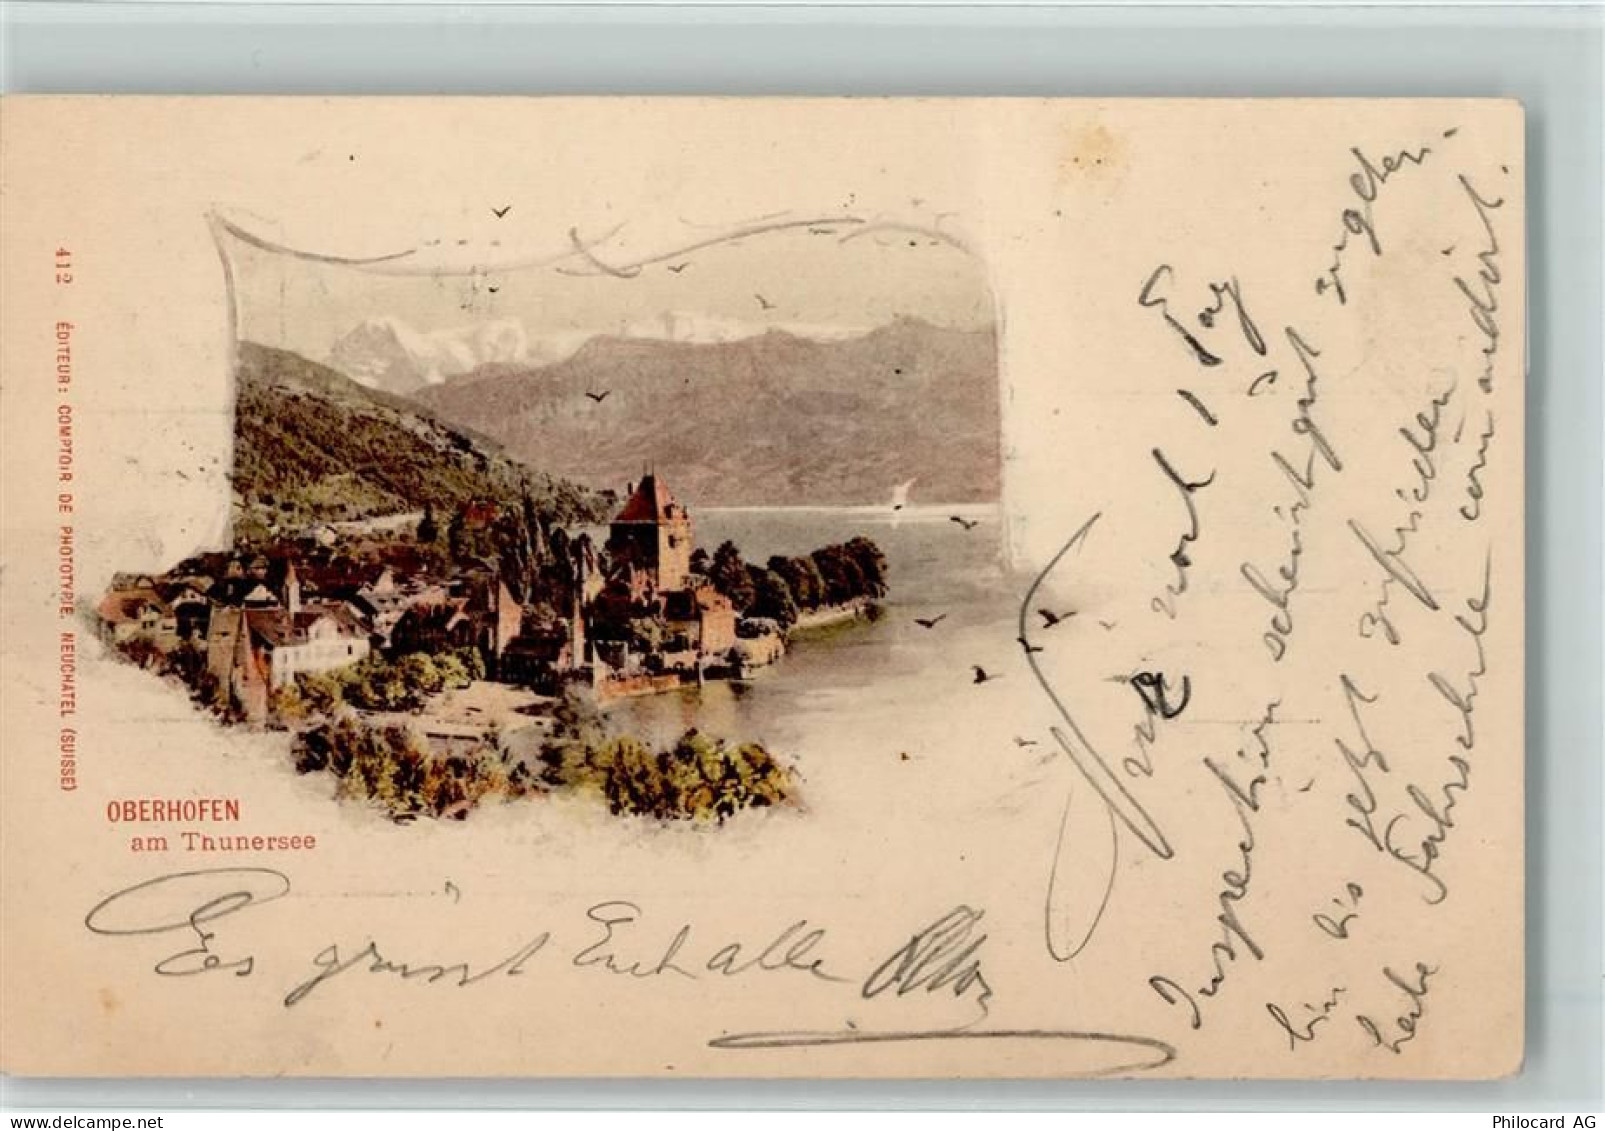 412 ÉDITEUR: COMPTOIR DE PHOTOTYPIE, NEUCHATEL (SUISSE)
OBERHOFEN
am Thunersee
Nur noch 1 Tag
Inspection scheint gut
bin bis jetzt zufrieden
habe Fahrschule
Es grüsst Euch alle
Philocard AG